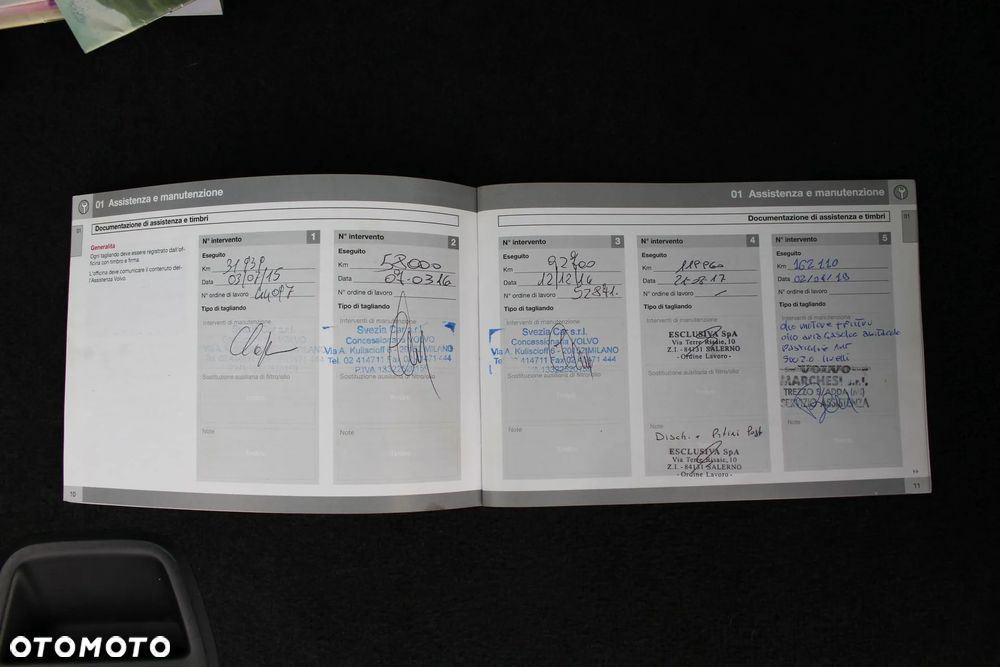 01 Assistenza e manutenzione
Documentazione di assistenza e timbri
01
Generalità
Ogni tagliando deve essere registrato dall'of-
ficina con timbro e firma.
L'officina deve comunicare il contenuto del-
l'Assistenza Volvo.
N° intervento 1
Eseguito
Km
Data 03/07/15
N° ordine di lavoro
Tipo di tagliando
Interventi di manutenzione
Sostituzione ausiliaria di filtro/olio
Note
N° intervento 2
Eseguito
Km 58000
Data 07.03.16
N° ordine di lavoro
Tipo di tagliando
Interventi di manutenzione
Svezia Car s.r.l.
Concessionaria VOLVO
Via A. Kuliscioff 6 - 20152 MILANO
Tel. 02 414711 Fax 02 4471 444
Sostituzione ausiliaria di filtro/olio
Note
10
01 Assistenza e manutenzione
Documentazione di assistenza e timbri
01
N° intervento 3
Eseguito
Km 92700
Data 12/12/16
N° ordine di lavoro 52871.
Tipo di tagliando
Interventi di manutenzione
Svezia Car s.r.l.
Concessionaria VOLVO
Via A. Kuliscioff 6 - 20152 MILANO
Tel. 02 414711 Fax 02 4471 444
Sostituzione ausiliaria di filtro/olio
Note
N° intervento 4
Eseguito
Km
Data
N° ordine di lavoro
Tipo di tagliando
Interventi di manutenzione
ESCLUSIVA SpA
Via Terre Risaie, 10
Z.I. - 84131 SALERNO
- Ordine Lavoro -
Sostituzione ausiliaria di filtro/olio
Note
Dischi e Post
ESCLUSIVA SpA
Via Terre Risaie, 10
Z.I. - 84131 SALERNO
- Ordine Lavoro -
N° intervento 5
Eseguito
Km 162110
Data
N° ordine di lavoro
Tipo di tagliando
olio motore + filtro
livelli
VOLVO
MARCHESI s.r.l.
TREZZO S/ADDA (MI)
SERVIZIO ASSISTENZA
Note
11
OTOMOTO